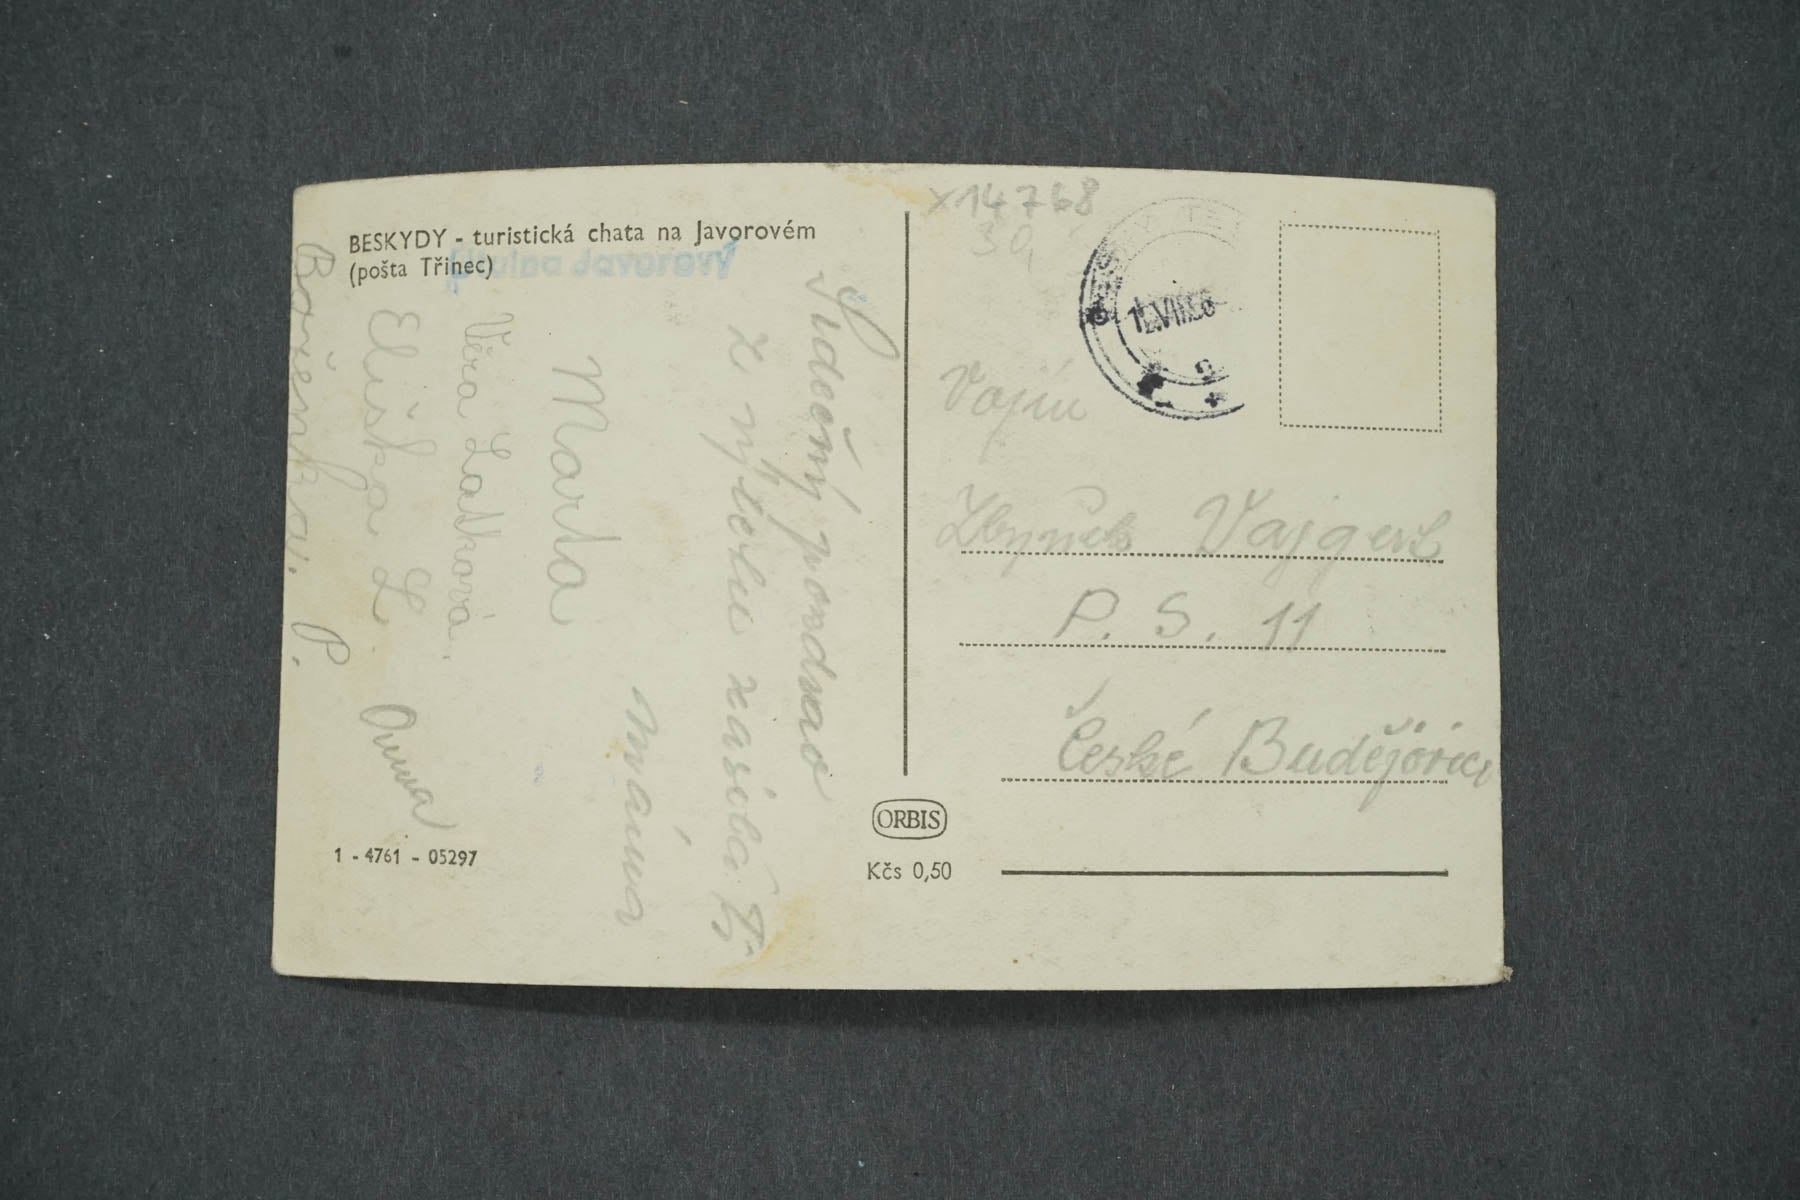 BESKYDY - turistická chata na Javorovém
(pošta Třinec)
Javorový
Srdečný pozdrav
z výletu zasílá
Marta
Věra Latková.
Eliška L.
Boženka P.
Anna
1 - 4761 - 05297
ORBIS
Kčs 0,50
x14768
Vojín
Zbyněk Vajgert
P. S. 11
České Budějovice